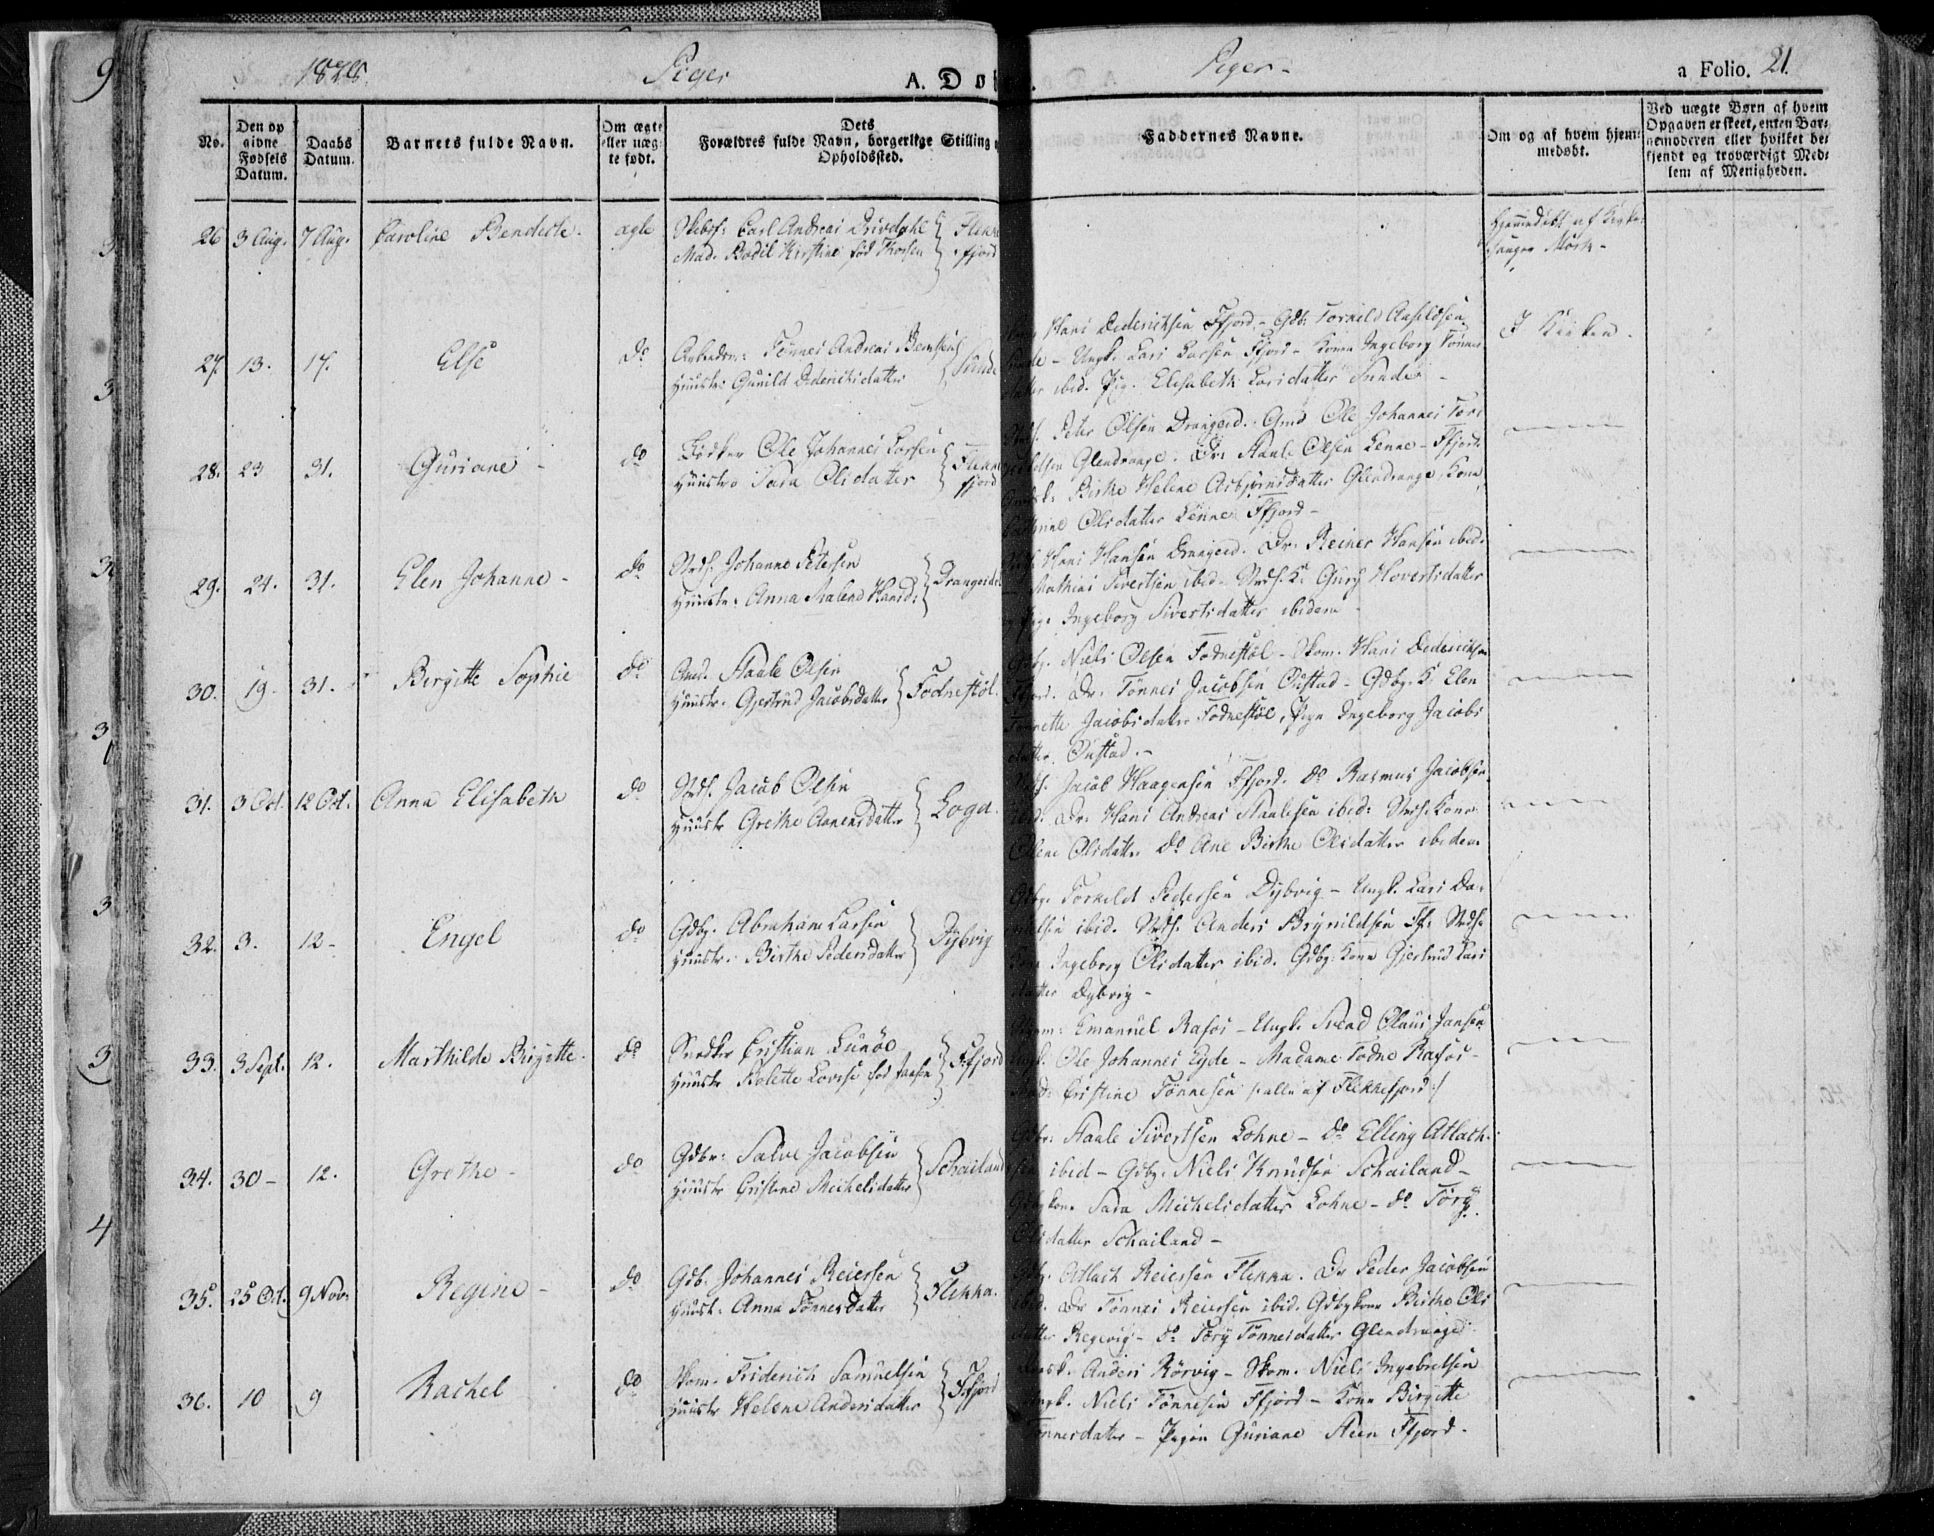 1828.
Piger
A. Dø
Piger-
a Folio. 21.
No.
Den op
givne
Fødsels
Datum.
Daabs
Datum.
Barnets fulde Navn.
Om ægte
eller uæg
te født.
Dets
Forældres fulde Navn, borgerlige Stilling
Opholdssted.
Faddernes Navne.
Om og af hvem hjem
medøbt.
Ved uægte Børn af hvem
Opgaven er skeet, enten Bar
nemoderen eller hvilket be
kjendt og troværdigt Med
lem af Menigheden.
26 3 Aug. 7 Aug. Caroline Bendecte. ægte
Skibsf: Carl Andreas Drivdahl
Mad. Bodil Kirstine fød
Flekke
fjord
Hjemmedøbt af
27. 13. 17. Else do
Tønnes Andreas Berntsen
Hustr: Gunild Dideriksdatter
Sunde
Hans Dederichsen Ffjord - Gdb: Torkild
- Ungk. Lars Larsen Ffjord - Kone Ingeborg Tønnes
ibid. Pig. Elisabeth Larsdatter Sunde -
I Kirken.
28. 23 31. Guriane - do
Bødker Ole Johannes Larsen
Hustru Sara Olsdatter
Flekke
fjord
Peter Olsen Drangeid. Gmd Ole Johannes Tor
kelsen Glendrange. Do Staale Olsen Lenne - Ffjord.
Birthe Helene Asbjørnsdatter Glendrange, Kone
Olsdatter Lenne Ffjord -
29. 24. 31. Elen Johanne - do
Strds. Johanne Petersen
Hustr: Anna Malena Hansd:
Drangeid
Hans Hansen Drangeid. Do Reiner Hansen ibid.
Mathias Sivertsen ibid - Strds.K. Gury Hovertsdatter
Ingeborg Sivertsdatter ibidem -
30. 19. 31. Birgitte Sophie do
Gmd. Staale Olsen
Hustr. Gjertrud Jacobsdatter
Fodnestøl.
Gdbg. Niels Olsen Fodnestøl - Skom. Hans Dederichsen
Do Tønnes Jacobsen Øustad - Gdbg. K. Elen
Tonette Jacobsdatter Fodnestøl, Pige Ingeborg Jacobs
datter Øustad. -
31. 3 Oct. 12 Oct. Anna Elisabeth do
Strds. Jacob Olsen
Hustr Grethe Aanensdatter
Loga.
Jacob Haagensen Ffjord. Do Rasmus Jacobsen
Do Hans Andreas Staalesen ibid: Strds. Kone
Olene Olsdatter Do Ane Birthe Olsdatter ibidem
32. 3. 12 - Engel do
Gdbg. Abraham Larsen
Hustr. Birthe Pedersdatter
Dybvig
Gdbg. Torkild Pedersen Dybvig - Ungk. Lars Da-
nielsen ibid. Strds. Anders Brynildsen Ff: Strds.
Kone Ingeborg Olsdatter ibid. Gdbg: Kone Gjertrud Lars
datter Dybvig -
33. 3 Sept. 12. Marthilde Birgitte. do
Snedker Cristian Lunøe
Hustr Bolette Lovise fød Jansen
Ffjord
Emanuel Rafos - Ungk. Svend Olaus Jansen
Ungk. Ole Johannes Eyde - Madame Todne Rafos -
Cristine Tønnesen /:alle af Flekkefjord:/
34. 30 - 12. Grethe - do
Gdbr: Salve Jacobsen
Hustr Cristine Michelsdatter
Schailand
Gdbr: Staale Sivertsen Lohne - do Elling Atlach-
sen ibid - Gdbg. Niels Knudsen Schailand -
Gdbgkone Sara Michelsdatter Lohne - do Tory
Olsdatter Schailand -
35. 25 Oct. 9 Nov: Regine - do
Gdb. Johannes Reiersen
Hustr. Anna Tønnesdatter
Flikka.
Gdbg. Atlach Reiersen Flikka. Do Peder Jacobsen
ibid. Do Tønnes Reiersen ibid. Gdbgkone Birthe Ols
datter Regevig - do Tory Tønnesdatter Glendrange
36. 10 9 Rachel do
Skom. Friderich Samuelsen
Hustr Helene Andersdatter
Ffjord
Anders Rörvig - Skom. Niels Ingebretsen
Ungk. Niels Tønnesen Ffjord - Kone Birgitte
Tønnesdatter - Pigen Guriane Steen Ffjord.